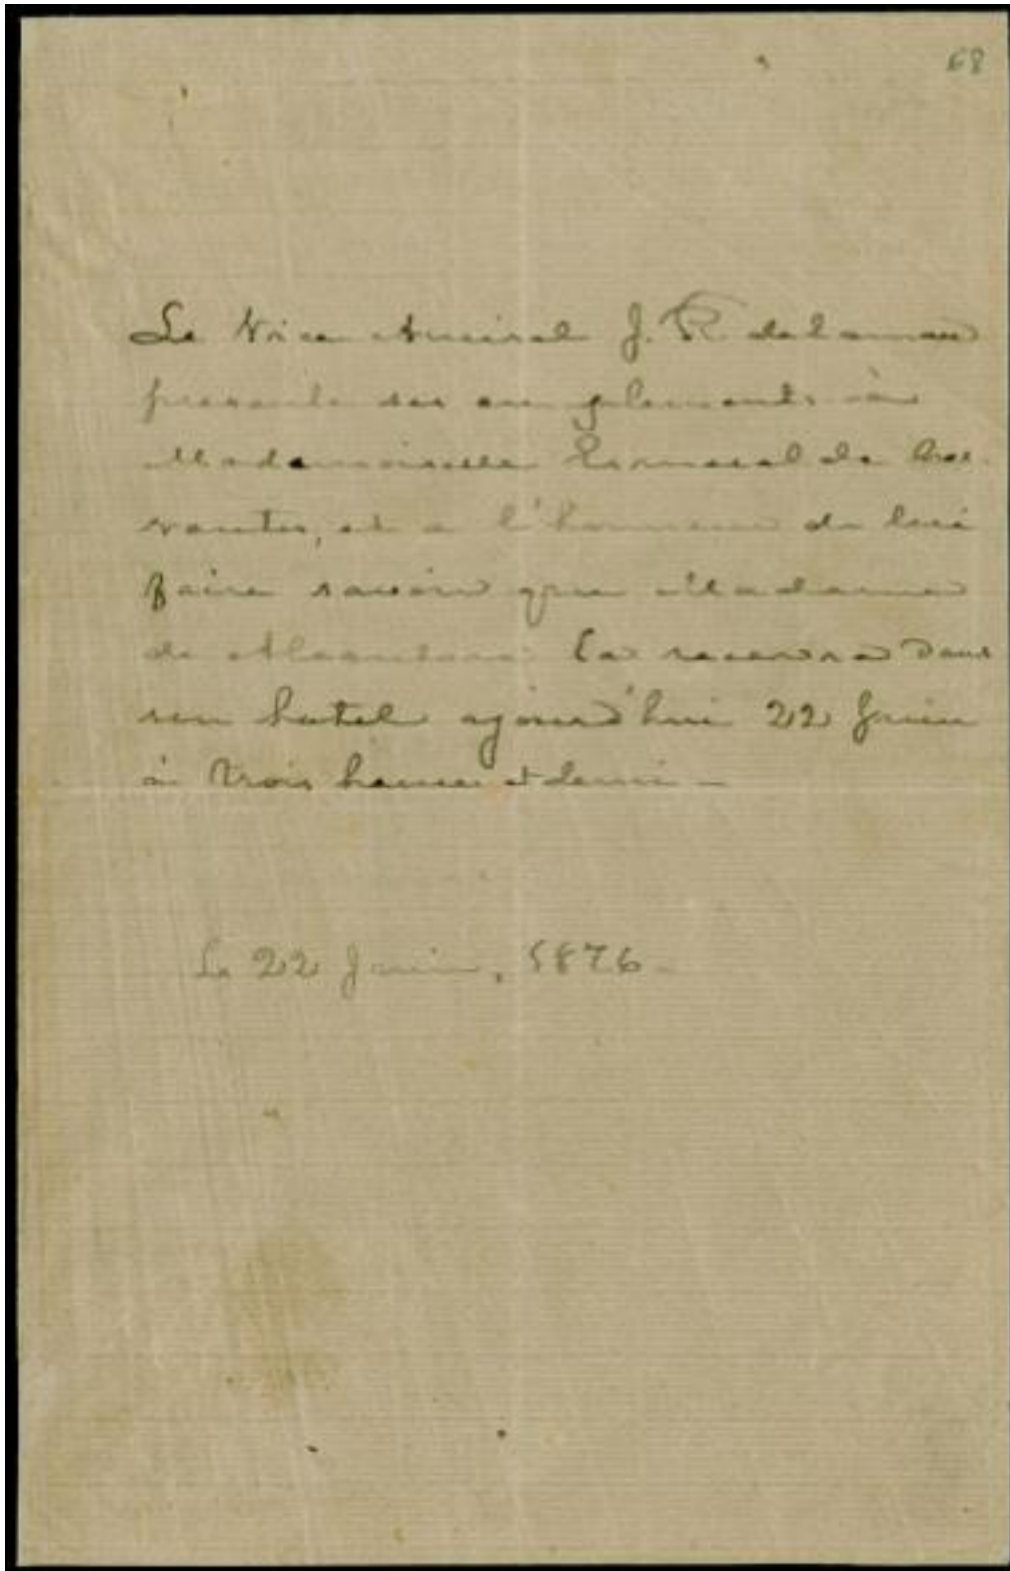 68
Le Vice Amiral J. R. delamare
presente ses complements à
Mademoiselle Esmeral de
vantes, et a l'honneur de lui
faire savoir que Madame
de Alcantara la recevra dans
son hotel ajourd'hui 22 Juin
à trois heures et demi –
Le 22 Juin, 1876 –